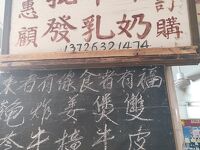 惠顧
發乳奶
訂購
13726321474
來者有緣食者有福
炸姜煲雙
牛 牛皮